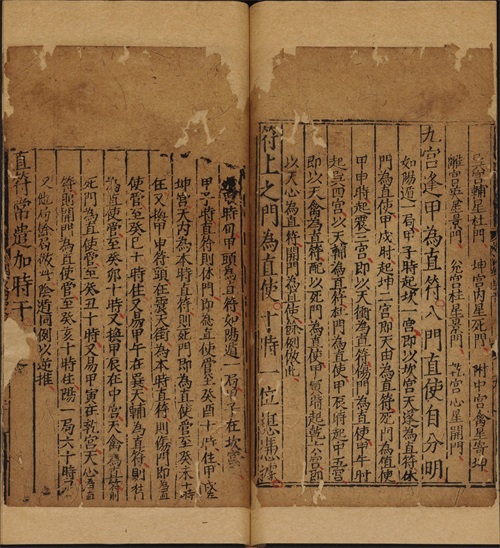 宮輔星杜門 坤宮內星死門 附中宮禽星皆坤
離宮英星景門 兌宮柱星景門 宮心星開門
九宮逢甲為直符八門直使自分明
如陽遁一局甲子時起坎一宮即以坎宮天蓬為直符休
門為直使甲戌時起坤二宮即天內為直符死門為值使
甲申時起震三宮即以天衝為直符傷門為直使甲午時
起巽四宮以天輔為直符杜門為直使甲辰時起中五宮
即以天禽為直符配以死門為直使甲寅時起乾六宮即
以天心為直符開門為直使餘倣此
符上之門為直使十時一位堪憑據
時旬甲頭為直符如陽遁一局甲子在坎宮
甲子時直符則休門即為直使管至癸酉十時住甲戌在
坤宮天內為本時直符則死門即為直使管至癸未十時
住又換甲申符頭在震天衝為本時直符則傷門即為
直使管至癸巳十時住又易甲午在巽天輔為直符則杜
為直使管至癸卯十時又換甲辰在中宮天禽為直符則
死門為直使管至癸丑十時又易甲寅在乾宮天心為直
符則開門為直使管至癸亥十時住陽一局六十時
又他局倣此陰遁同例以逆推
直符常遣加時干